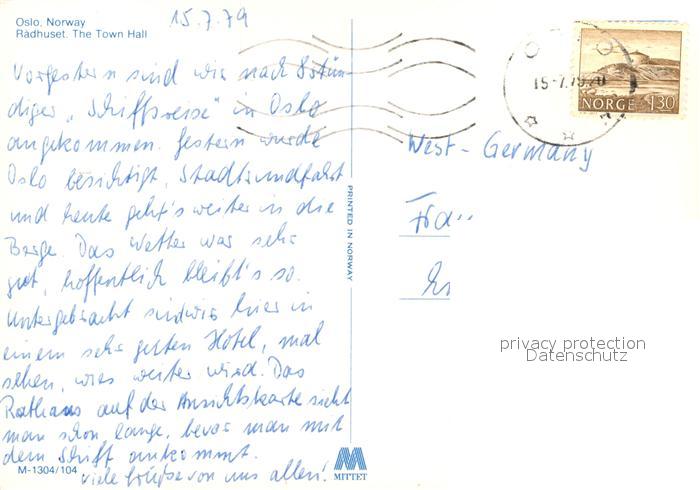 Oslo, Norway
Rådhuset. The Town Hall
15.7.79
Vorgestern sind wir nach 8stün-
diger „Schiffsreise" in Oslo
angekommen. Gestern wurde
Oslo besichtigt, Stadtrundfahrt
und heute geht's weiter in die
Berge. Das Wetter war sehr
gut, hoffentlich bleibt's so.
Untergebracht sind wir hier in
einem sehr guten Hotel, mal
sehen, wies weiter wird. Das
Rathaus auf der Ansichtskarte sieht
man schon lange, bevor man mit
dem Schiff ankommt.
Viele Grüße von uns allen!
M-1304/104
PRINTED IN NORWAY
MITTET
OSLO
15-7.79.
NORGE 1.30
West-Germany
privacy protection
Datenschutz